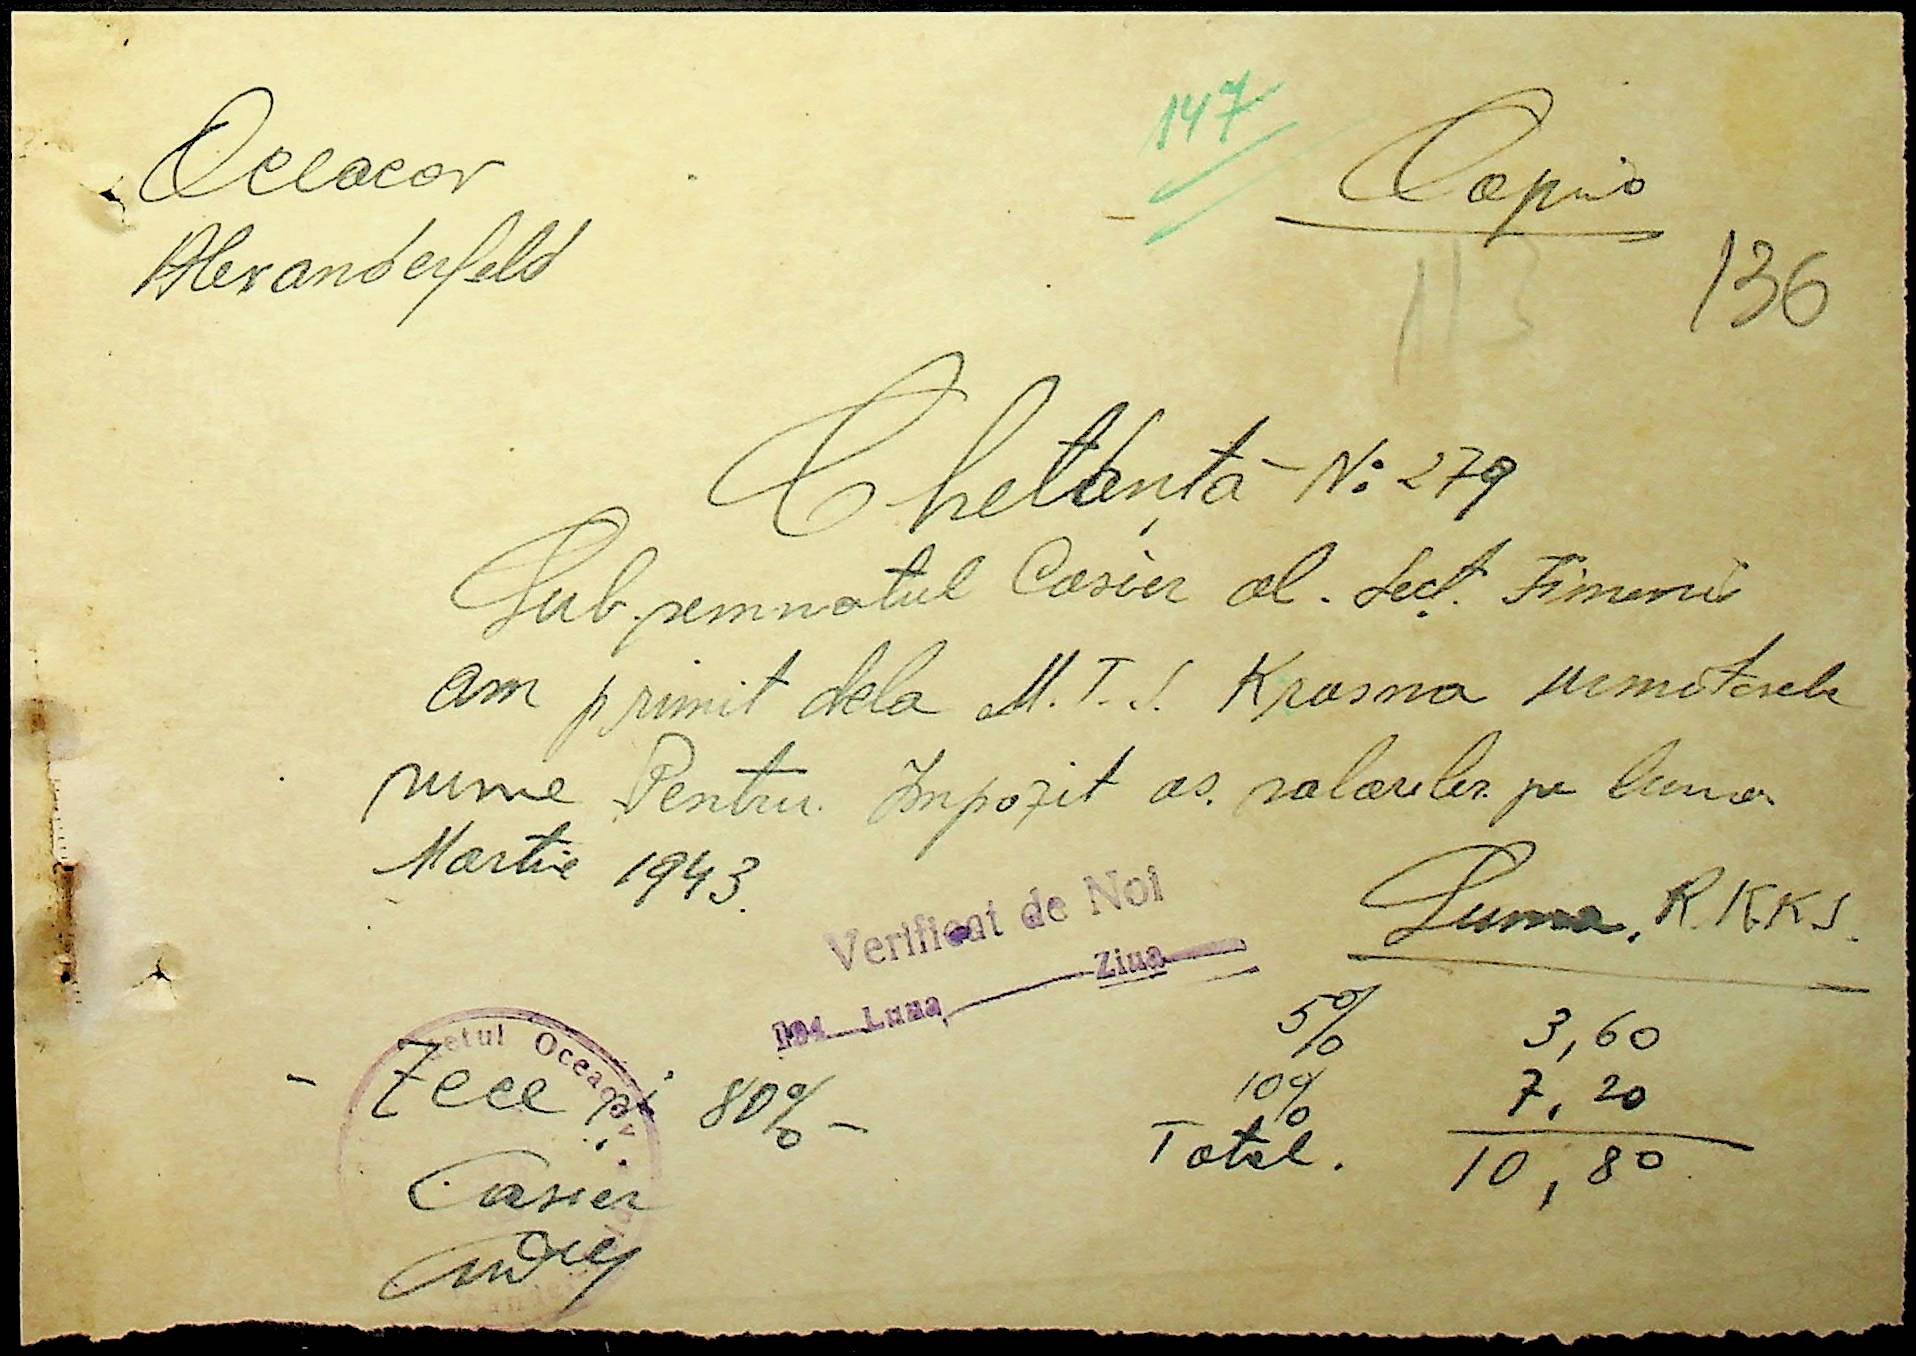 147
Copie
Oceacov
Alexanderfeld
113
136
Chetanță No: 279
Subsemnatul Casier al. Secț. Financi
am primit dela M.T.S. Krasna urmatorele
sume Pentru. Impozit as. salarilor pe luna
Martie 1943.
Verificat de Noi
194 Luna Ziua
Suma. R.K.K.S.
5% 3,60
10% 7,20
Total. 10,80
- Zece și 80% -
etul Oceacov
Casier